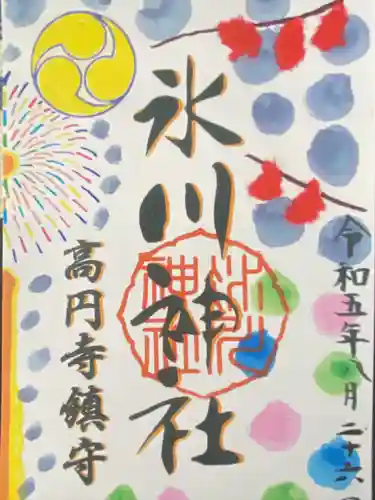 令和五年八月二十六
氷川神社
高円寺鎮守